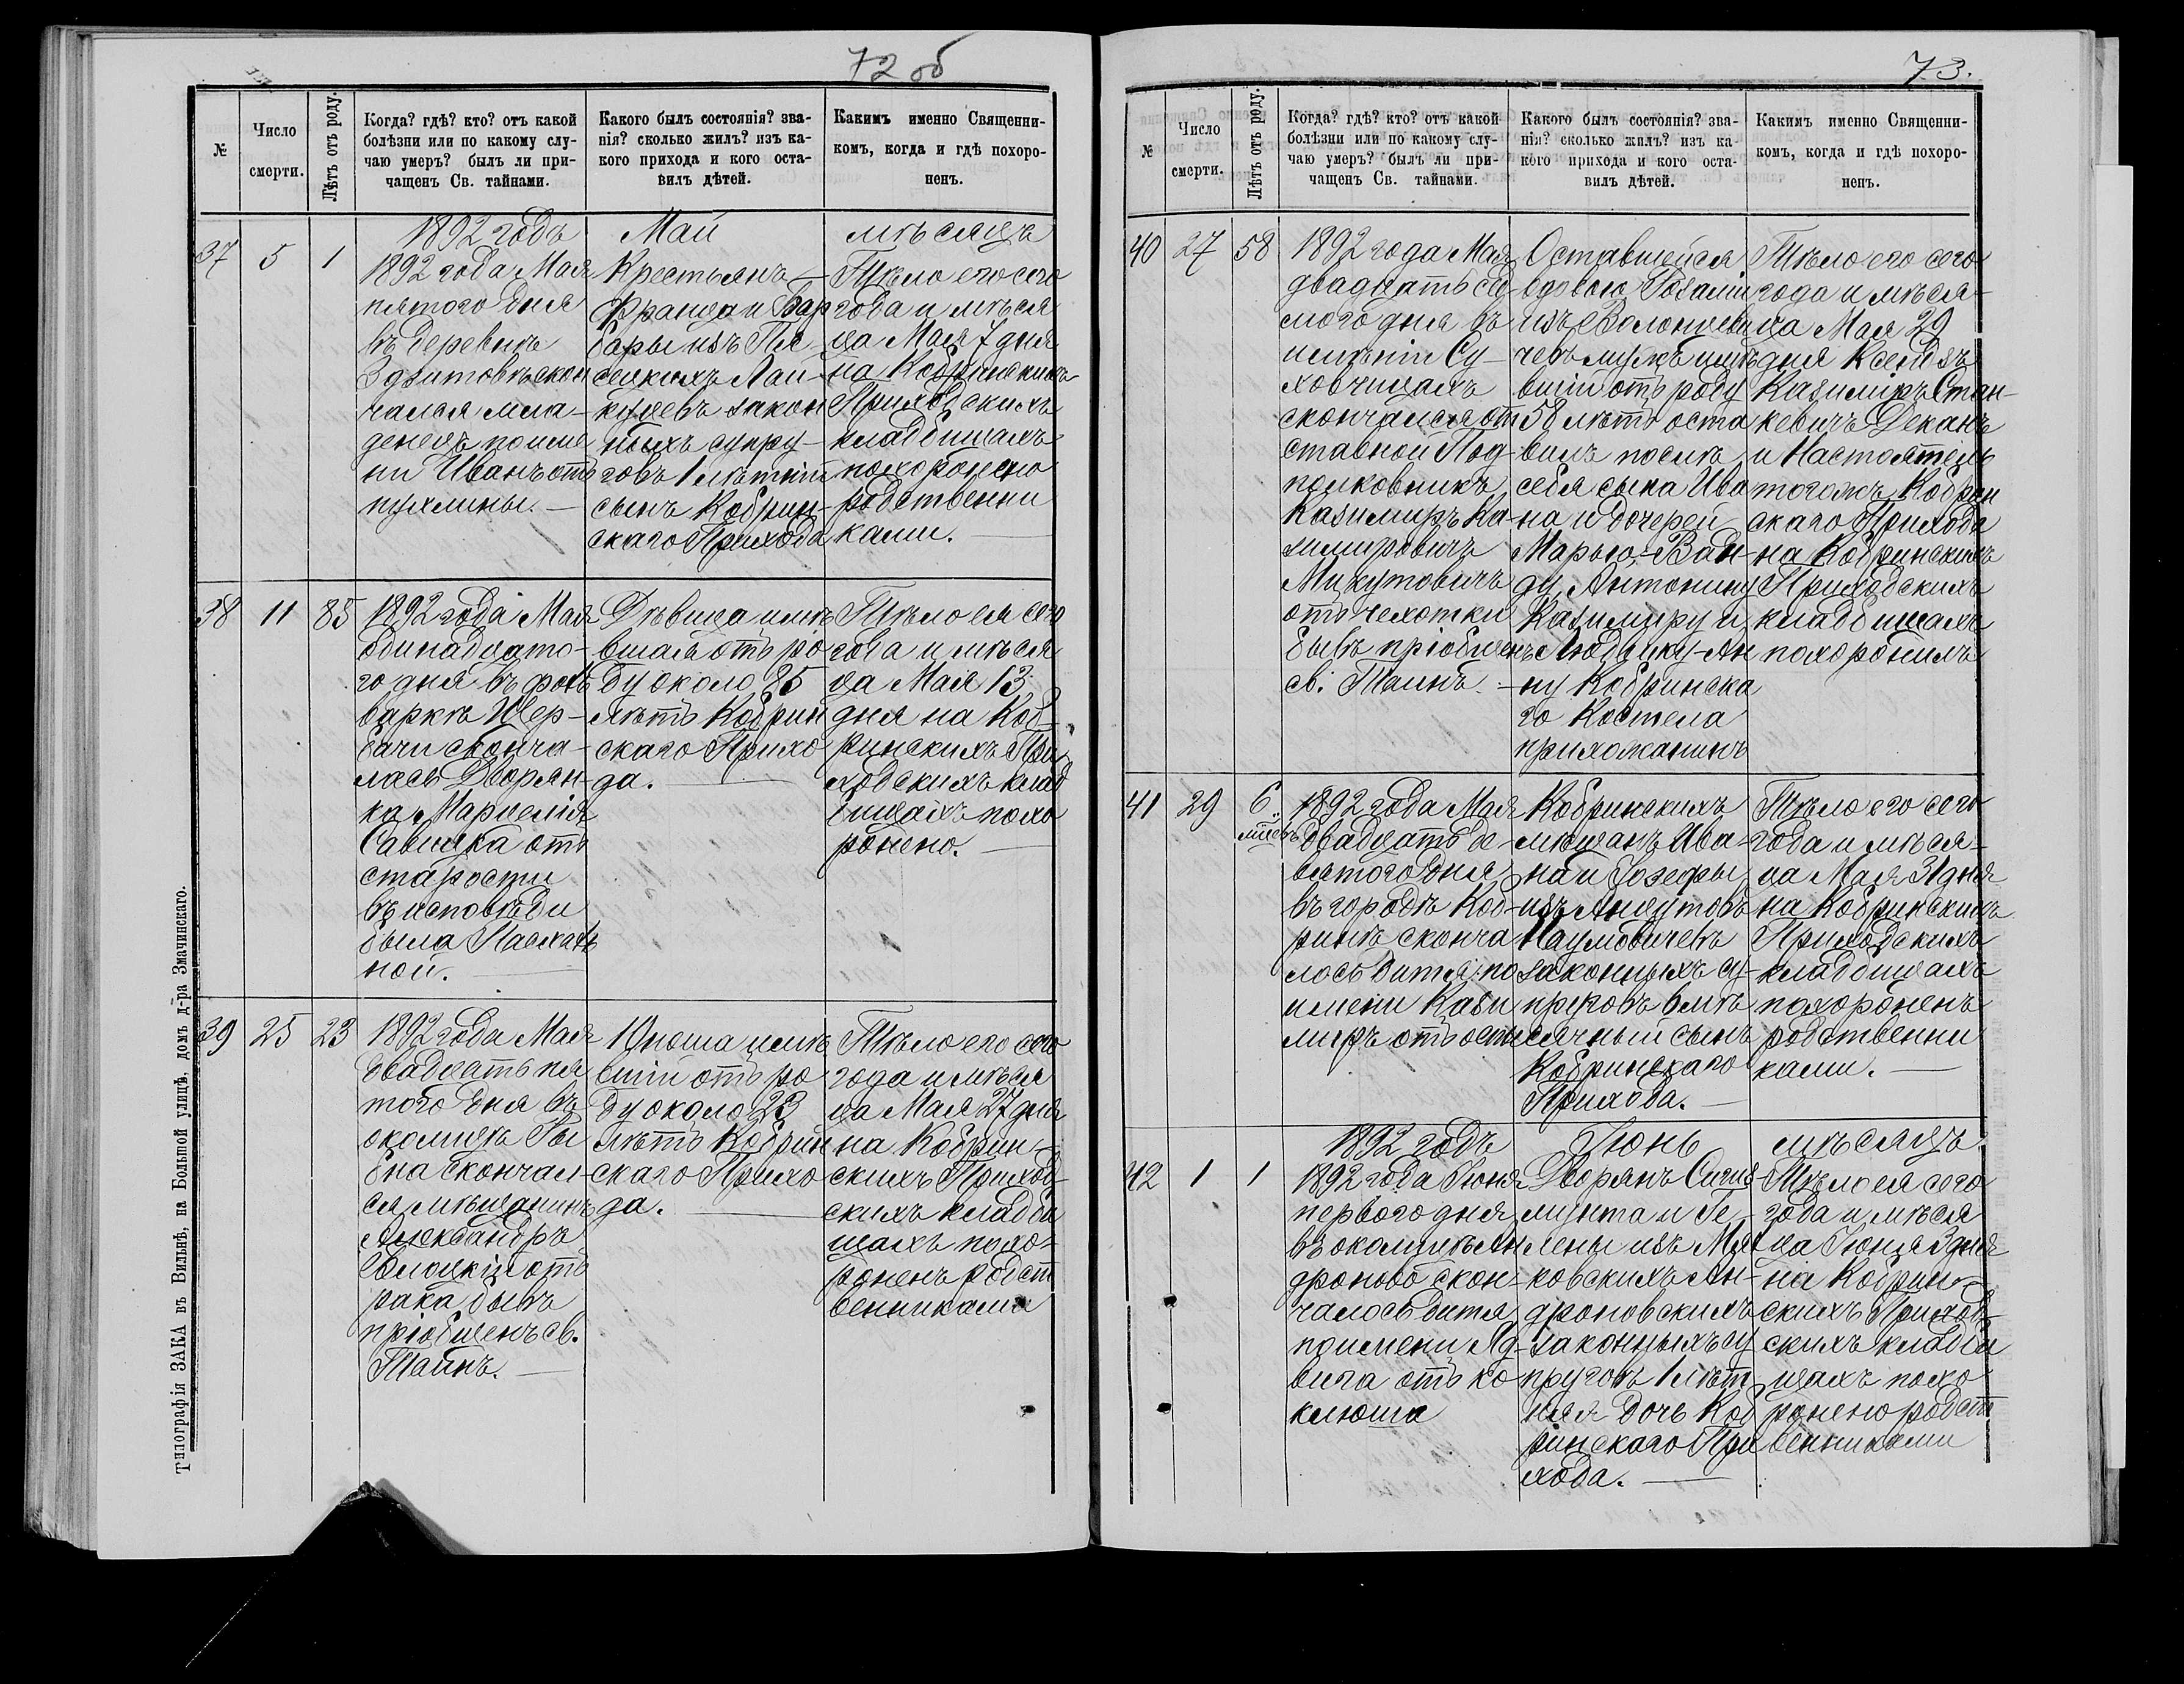 72 об
№
Число
смерти.
Лѣтъ отъ роду.
Когда? гдѣ? кто? отъ какой
болѣзни или по какому слу-
чаю умеръ? былъ ли при-
чащенъ Св. тайнами.
Какого былъ состоянія? зва-
нія? сколько жилъ? изъ ка-
кого прихода и кого оста-
вилъ дѣтей.
Какимъ именно Священни-
комъ, когда и гдѣ похоро-
ненъ.
1892 годъ Май мѣсяцъ
37
5
1
1892 года Мая
пятого дня
въ деревнѣ
Здзитовѣ скон
чался мла-
денецъ по име
ни Иванъ отъ
пухлины. —
Крестьянъ —
Франца и Бар
бары изъ
закон
ныхъ супру-
говъ 1 лѣтній
сынъ Кобрин-
скаго Прихода
Тѣло его сего
года и мѣся
ца Мая 7 дня
на Кобринскихъ
Приходскихъ
кладбищахъ
похоронено
родственни
ками. —
38
11
85
1892 года Мая
одинадцато-
го дня въ фоль
варкѣ Щер-
бачи сконча-
лась Дворян-
ка Марцелія
Савицка отъ
старости
въ исповѣди
была Пасхаль
ной. —
Дѣвица имѣ
вшая отъ ро
ду около 85
лѣтъ Кобрин
скаго Прихо
да. —
Тѣло ея сего
года и мѣся
ца Мая 13
дня на Коб-
ринскихъ При
ходскихъ клад
бищахъ похо
ронено. —
39
25
23
1892 года Мая
двадцать пя
того дня въ
околицѣ Ры
бна скончал-
ся мѣщанинъ
Александръ
отъ
рака бывъ
пріобщенъ св.
Таинъ. —
Юноша имѣ
вшій отъ ро
ду около 23
лѣтъ Кобрин
скаго Прихо
да. —
Тѣло его сего
года и мѣся
ца Мая 27 дня
на Кобрин-
скихъ Приход-
скихъ кладби
щахъ похо-
роненъ родст
венниками
Типографія ЗАКА въ Вильнѣ, на Большой улицѣ, домъ д-ра Змачинскаго.
73.
№
Число
смерти.
Лѣтъ отъ роду.
Когда? гдѣ? кто? отъ какой
болѣзни или по какому слу-
чаю умеръ? былъ ли при-
чащенъ Св. тайнами.
Какого былъ состоянія? зва-
нія? сколько жилъ? изъ ка-
кого прихода и кого оста-
вилъ дѣтей.
Какимъ именно Священни-
комъ, когда и гдѣ похоро-
ненъ.
40
27
58
1892 года Мая
двадцать седь
мого дня въ
имѣніи Су-
ховчицахъ
скончался от
ставной Под-
полковникъ
Казимиръ Ка-
зимировичъ
Микутовичъ
отъ чехотки
бывъ пріобщенъ
св. Таинъ. —
Оставшейся
вдовою Розаліи
изъ Волонцеви
чевъ мужъ имѣ
вшій отъ роду
58 лѣтъ оста
вилъ послѣ
себя сына Ива
на и дочерей
Марью-Ван-
ду, Антонину
Казимиру и
Людвику-Ан
ну Кобринска
го Костела
прихожанинъ
Тѣло его сего
года и мѣся-
ца Мая 29
дня Ксендзъ
Казиміръ Стан-
кевичъ Деканъ
и Настоятель
тогожъ Кобрин
скаго Прихода
на Кобринскихъ
Приходскихъ
кладбищахъ
похоронилъ
41
29
6
мѣсяцъ
1892 года Мая
двадцать де-
вятого дня
въ городѣ Коб-
ринѣ сконча
лось дитя по
имени Кази
миръ отъ оспы
Кобринскихъ
мѣщанъ Ива-
на и Іозефы
изъ Анцутовъ
Наумовичевъ
законныхъ су-
пруговъ 6 мѣ
сячный сынъ
Кобринскаго
Прихода. —
Тѣло его сего
года и мѣся-
ца Мая 31 дня
на Кобринскихъ
Приходскихъ
кладбищахъ
похороненъ
родственни
ками. —
1892 годъ Іюнь мѣсяцъ.
42
1
1
1892 года Іюня
первого дня
въ околицѣ Ан
дроново скон-
чалось дитя
по имени Яд-
вига отъ ко
клюша
Дворянъ Сигиз
мунта и Ге-
лены изъ Мяч
ковскихъ Ан-
дроновскихъ
законныхъ су
пруговъ 1 лѣт
няя дочь Коб
ринскаго При
хода. —
Тѣло ея сего
года и мѣся
ца Іюня 3 дня
на Кобрин-
скихъ Приход-
скихъ кладби
щахъ похо
ронено родст
венниками